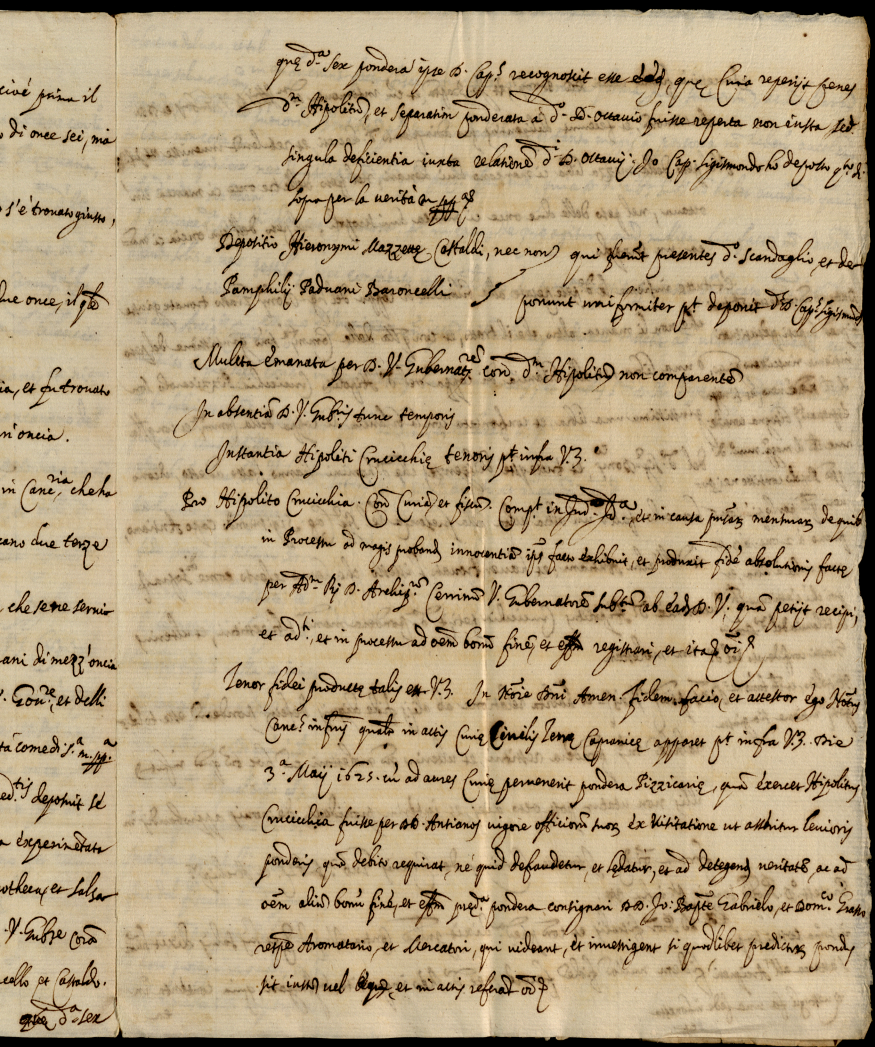 civè prima il
di once sei, mà
s'è trovato giusto,
due once, il qle
ia, et fu trovato
un'oncia.
in Canc.ria, che ha
cano due terze
che se ne servir
ani di mezz'oncia
Gov.re, et delli
tà come di s.a m. pp.a
ed.tis deposuit se
a experimētata
othecu, et salsar
V. Gubre corā
cello et Castaldo.
que d.a sex
quę d.a sex pondera ipse D. Cap.s recognoscit esse quę Curia reperijt penes
d.m Hipolitū, et separatim ponderata à d.o D. Octavio fuisse reperta non iusta sed
singula deficientia iuxta relationē d.i D. Octavij; Jo Cap. Sigismondo ho deposto qto di
sopra per la verità m. pp.a
Depositio Hieronymi Mazzette Castaldi, nec non qui fuerūt presentes d.o scandaglio, et de=
Pamphilij Paduani Baroncelli ponunt uniformiter pt deponit d.s D. Cap.s Sigismūd
Multa emanata per D. V. Gubernat.rēs corā d.m Hipolitū non comparentē
In absentiā D. V. Gub.ris tunc temporis
Instantia Hipoliti Crucicchię tenoris pt infra V.Z.
Pro Hipolito Crucicchia. Corā Curiā et fiscū. Compt in Jud. Jd.a et in causa mensurar. de quib
in Processu ad magis probandā innocentiā ips facto exhibuit, et produxit fidē absolutionis factę
per Adm. Rj D. Archip.rm Cerrinum V. Gubernatorē subtū ab eadē D. V., quā petijt recipi,
et ad.ti, et in processu ad oēm bonū finē, et effm registrari, et ita oī
Tenor fidei productę talis est V.Z. In Nōie Dnī Amen. Fidem facio, et attestor ego Notus
Canc.s infrus qualr in actis Curię Civilis Terrę Capranicę apparet pt infra V.Z. Die
3.a Maij 1625. cū ad aures Curię pervenerit pondera Pizzicarię, quā exercet Hipolitus
Crucicchia fuisse per DD. Antianos vigore officiorū suor. ex Visitatione ut asseritur levioris
ponderis quā debito requirat, ne quid defraudetur, et lędatur, et ad detegendā veritatē, ac ad
oēm aliū bonū finē, et effm pred.a pondera consignari DD. Jo: Bapte Gabrielo, et Dom.co Grasso
respē Aromatario, et Mercatori, qui videant, et investigent si quodlibet predictor. pondus
sit iustū vel et in actis referat oī